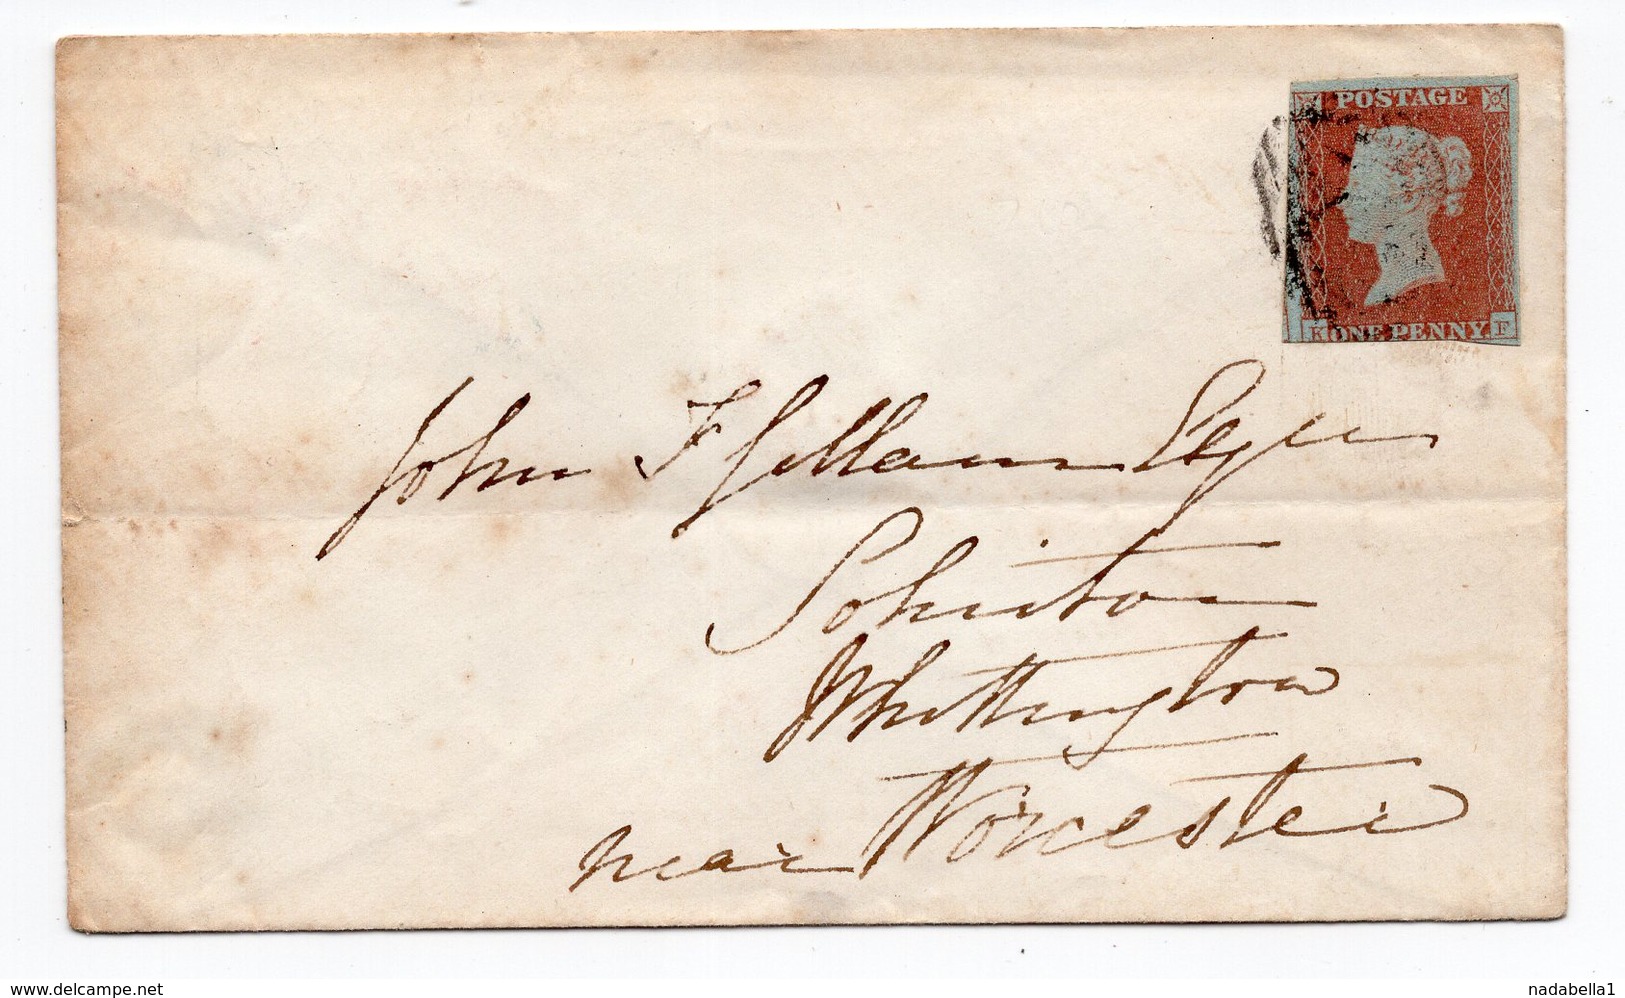 POSTAGE
K ONE PENNY F
John F Gillam Esqre
Whittington
near Worcester
www.delcampe.net
nadabella1